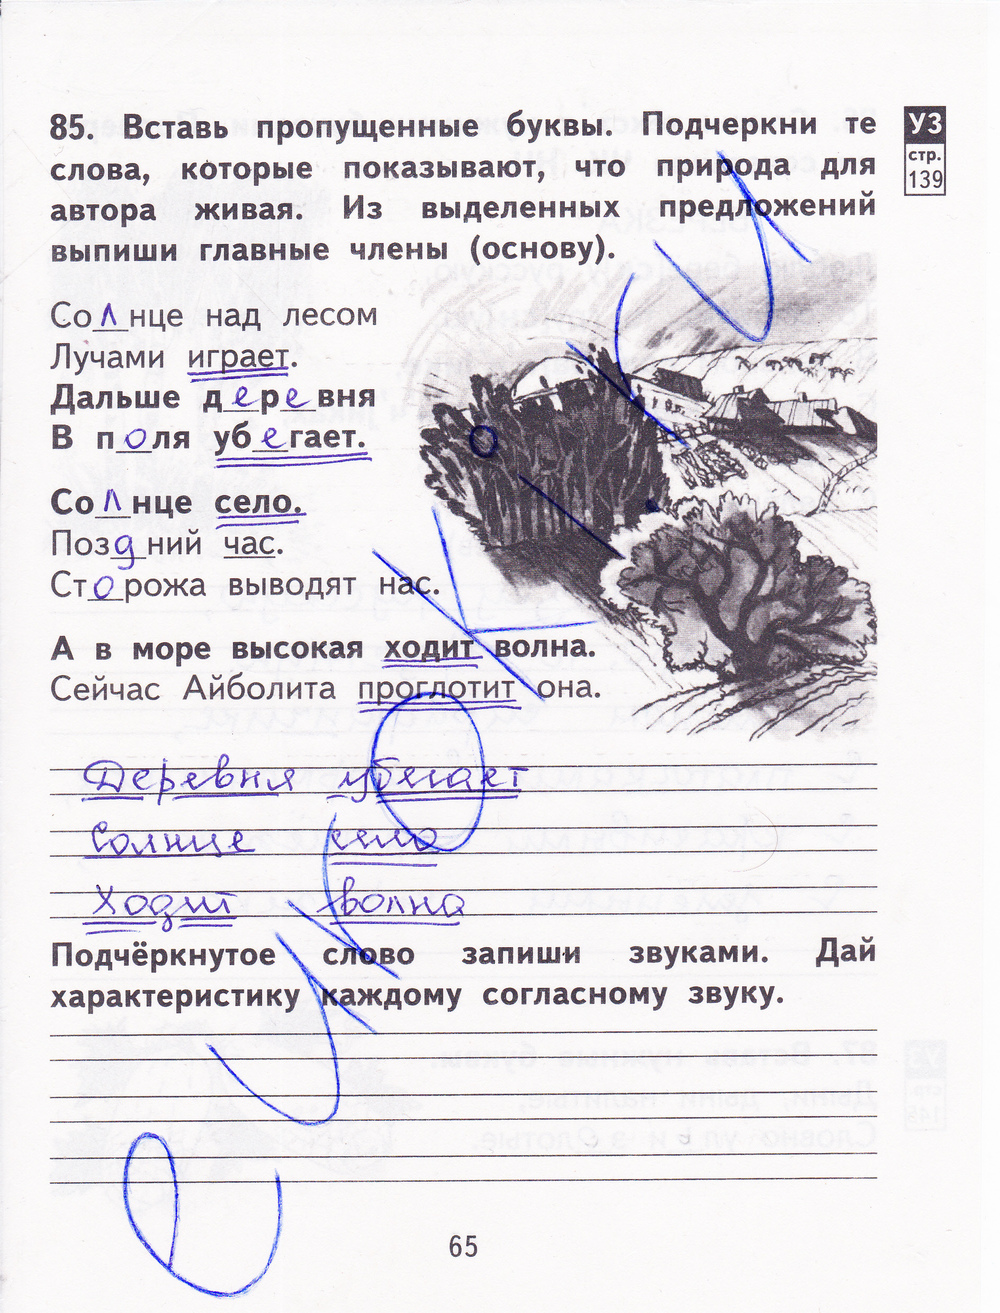 85. Вставь пропущенные буквы. Подчеркни те
слова, которые показывают, что природа для
автора живая. Из выделенных предложений
выпиши главные члены (основу).
УЗ
стр.
139
Солнце над лесом
Лучами играет.
Дальше деревня
В поля убегает.
Солнце село.
Поздний час.
Сторожа выводят нас.
А в море высокая ходит волна.
Сейчас Айболита проглотит она.
Деревня убегает
Солнце село
Ходит волна
Подчёркнутое слово запиши звуками. Дай
характеристику каждому согласному звуку.
65